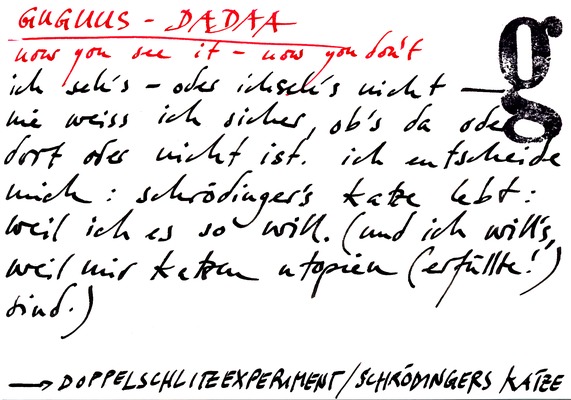 GUGUUS - DADAA
now you see it - now you don't
g
ich seh's - oder ich seh's nicht —
nie weiss ich sicher, ob's da oder
dort oder nicht ist. ich entscheide
mich: schrödinger's katze lebt:
weil ich es so will. (und ich will's,
weil mir katzen utopien (erfüllte!)
sind.)
→ DOPPELSCHLITZEXPERIMENT/SCHRÖDINGERS KATZE